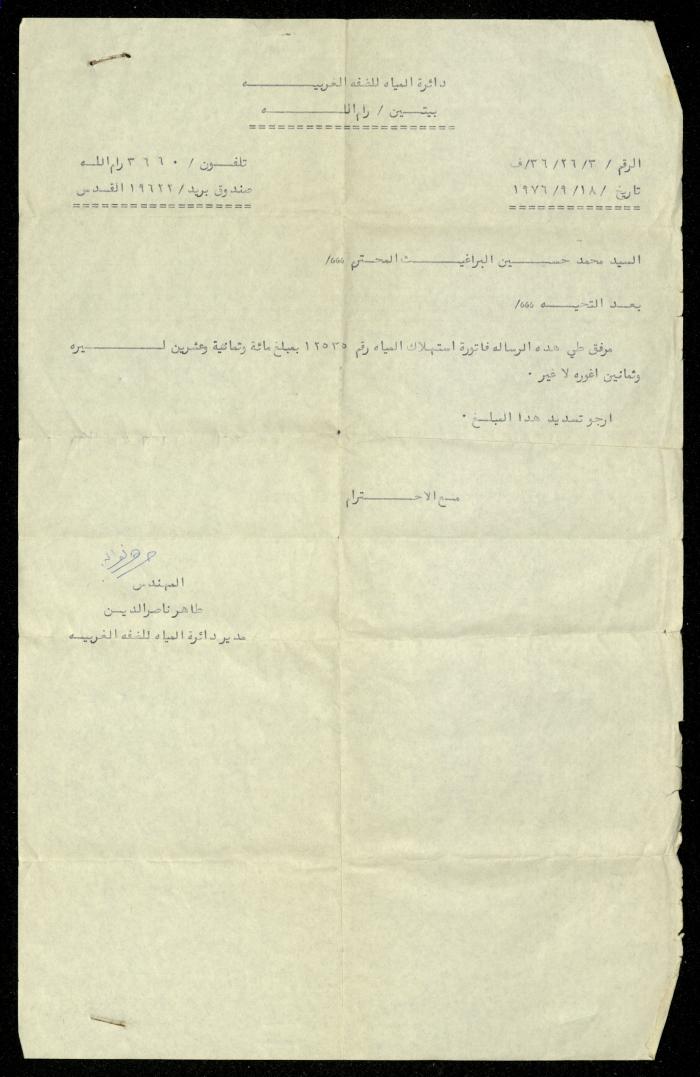 دائرة المياه للضفه الغربيـــــــه
بيتـــين / رام اللـــــــه
===========================
الرقم / ٣٦/٢٦/٣/ف
تلفــون / ٣٦٦٠ رام اللـه
تاريخ / ١٩٧٦/٩/١٨
صندوق بريد/ ١٩٦٢٢ القـدس
السيد محمد حســـين البراغيــــث المحـترم ،،،/
بعـد التحيـــه ،،،/
مرفق طي هده الرساله فاتورة استهلاك المياه رقم ١٢٥٣٥ بمبلغ مائة وثمانية وعشرين لـــــــيره
وثمانين اغوره لا غير ٠
ارجو تسديد هدا المبلـغ ٠
مـع الاحــــــترام
المهندس
طاهر ناصر الديـن
مدير دائرة المياه للضفه الغربيـه